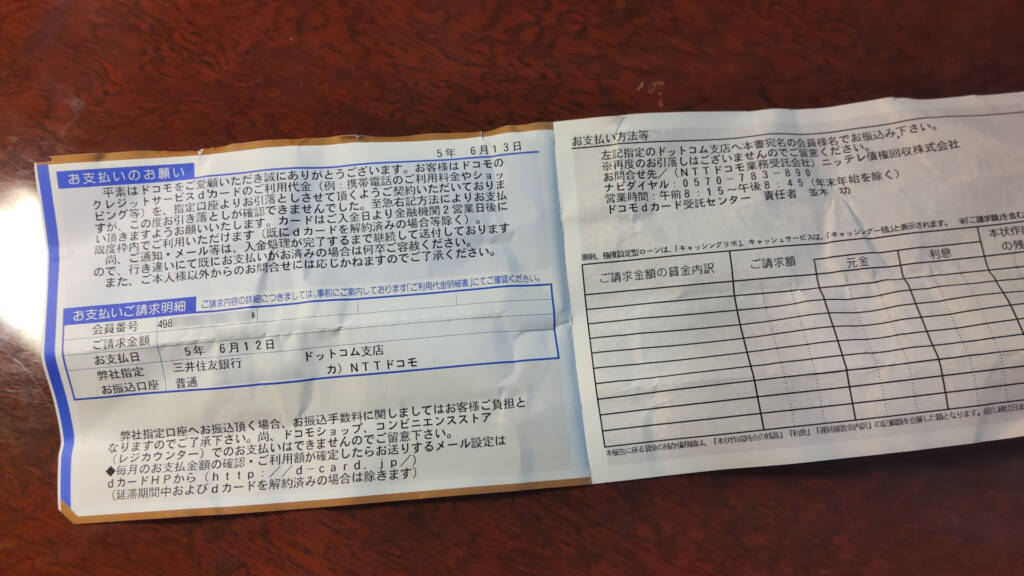 5年 6月13日
お支払いのお願い
平素はドコモをご愛顧いただき誠にありがとうございます。お客様はドコモの
クレジットサービスdカードのご利用代金(例:携帯電話のご利用料金やショッ
ピング等)を、指定口座よりお引落としさせて頂く
すが、この度お引落としが確認できません
い頂きますようお願いいたします。カードはご入金日より金融機関2営業日後に
限度枠内でご利用いただけます(既にdカードを解約済みの場合等除く)。
尚、ご通知・メール等は、入金処理が完了するまで継続して送付しております
ので、行き違いにて既にお支払いがお済みの場合は何卒ご容赦ください。
また、ご本人様以外からのお問合せには応じかねますのでご了承ください。
お支払いご請求明細 ご請求内容の詳細につきましては、事前にご案内しております「ご利用代金明細書」にてご確認ください。
会員番号 498
ご請求金額
お支払日 5年 6月12日
弊社指定 三井住友銀行 ドットコム支店
お振込口座 普通 カ)NTTドコモ
弊社指定口座へお振込頂く場合、お振込手数料に関しましてはお客様ご負担と
なりますのでご了承下さい。尚、ドコモショップ、コンビニエンスストア
(レジカウンター)でのお支払いはできませんのでご留意下さい。
◆毎月のお支払金額の確認・ご利用額が確定したらお送りするメール設定は
dカードHPから(http://d-card.jp/)
(延滞期間中およびdカードを解約済みの場合は除きます)
お支払い方法等
左記指定のドットコム支店へ本書宛名の会員様名でお振込み下さい。
※再度のお引落しはございませんのでご留意ください。
お問合せ先/(NTTドコモ業務受託会社)ニッテレ債権回収株式会社
ナビダイヤル:0570-783-890
営業時間:午前8:15~午後8:45(年末年始を除く)
ドコモdカード受託センター 責任者 並木 功
原則、極度設定型ローンは、「キャッシングリボ」、キャッシュサービスは、「キャッシング一括」と表示されます。
ご請求金額の賃金内訳 ご請求額 元金 利息 本状作成
の残